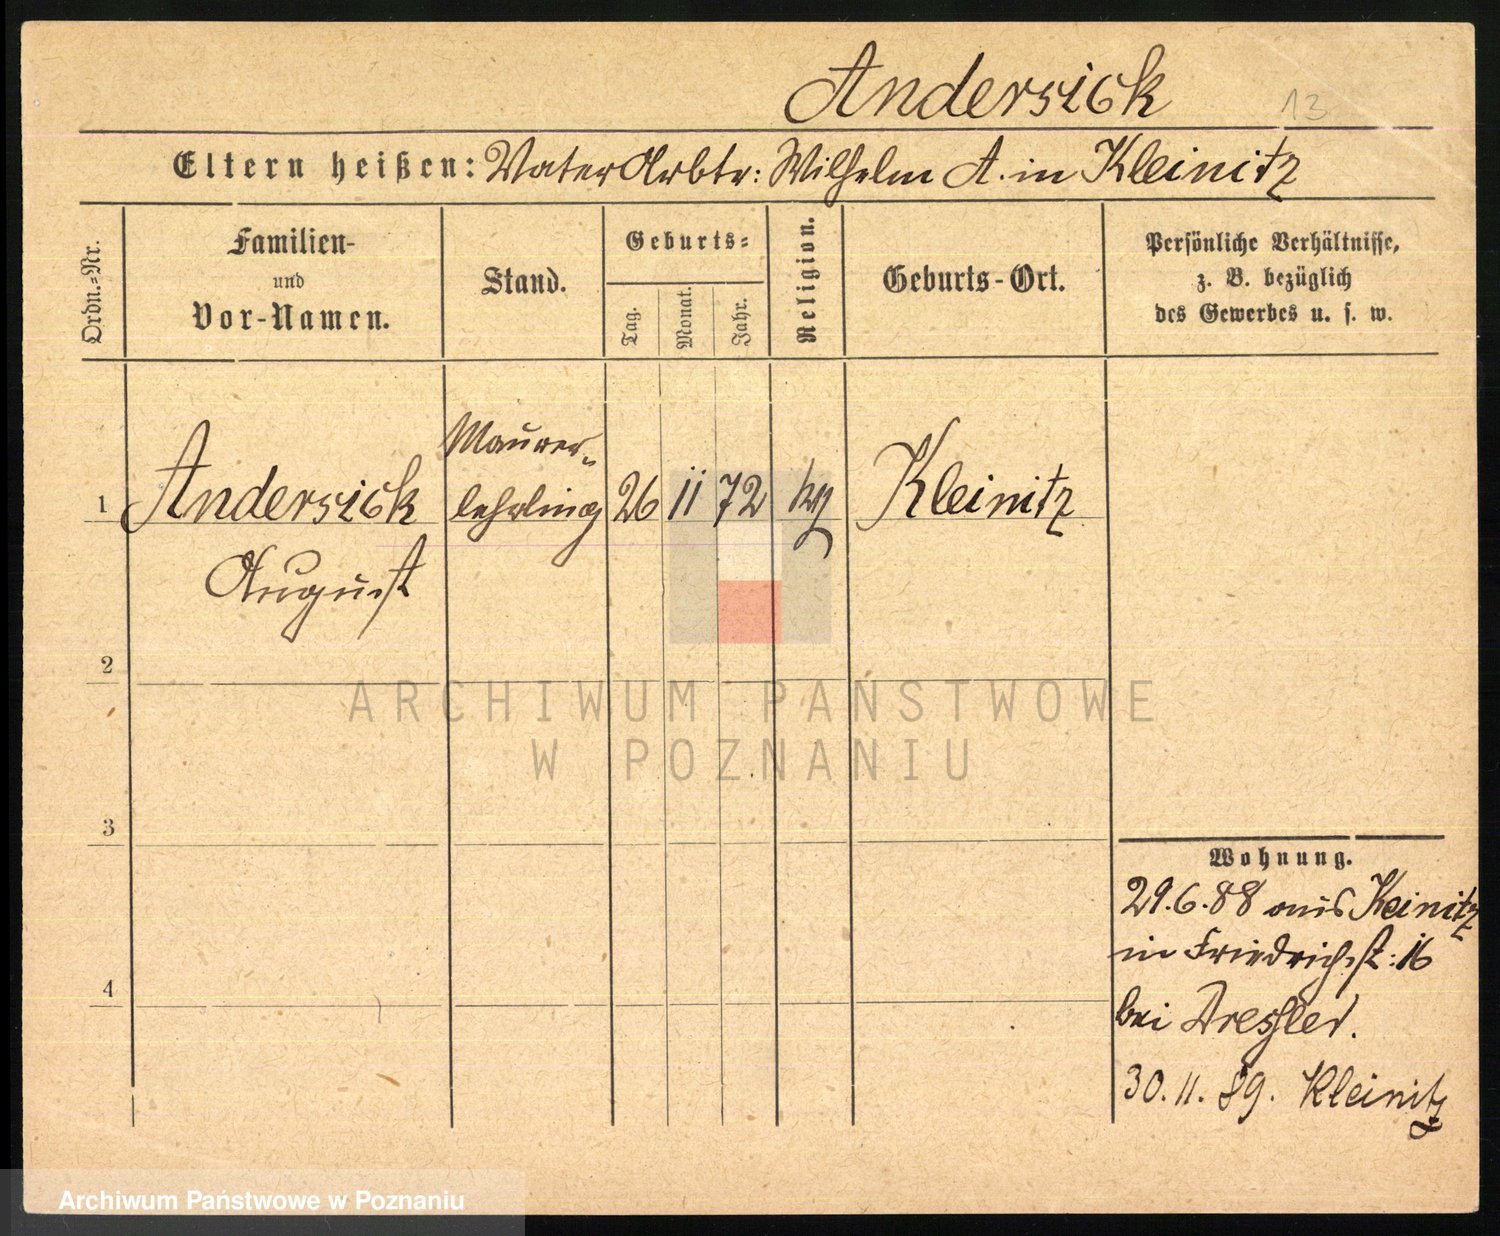 Andersick 13
Eltern heißen: Vater Arbtr: Wilhelm A. in Kleinitz
Ordn.-Nr.
Familien-
und
Vor-Namen.
Stand.
Geburts-
Tag.
Monat.
Jahr.
Religion.
Geburts-Ort.
Persönliche Verhältnisse,
z. B. bezüglich
des Gewerbes u. s. w.
Maurer-
1 Andersick lehrling 26 11 72 Kleinitz
August
2
3
4
Wohnung.
29.6.88 aus Keinitz
in Friedrichst: 16
bei Dressler.
30.11.89. Kleinitz
ARCHIWUM PAŃSTWOWE
W POZNANIU
Archiwum Państwowe w Poznaniu